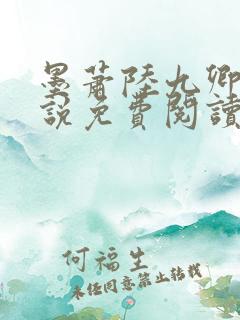 墨蕭陸九卿
說免費閱讀
何福生
未經同意禁止轉載